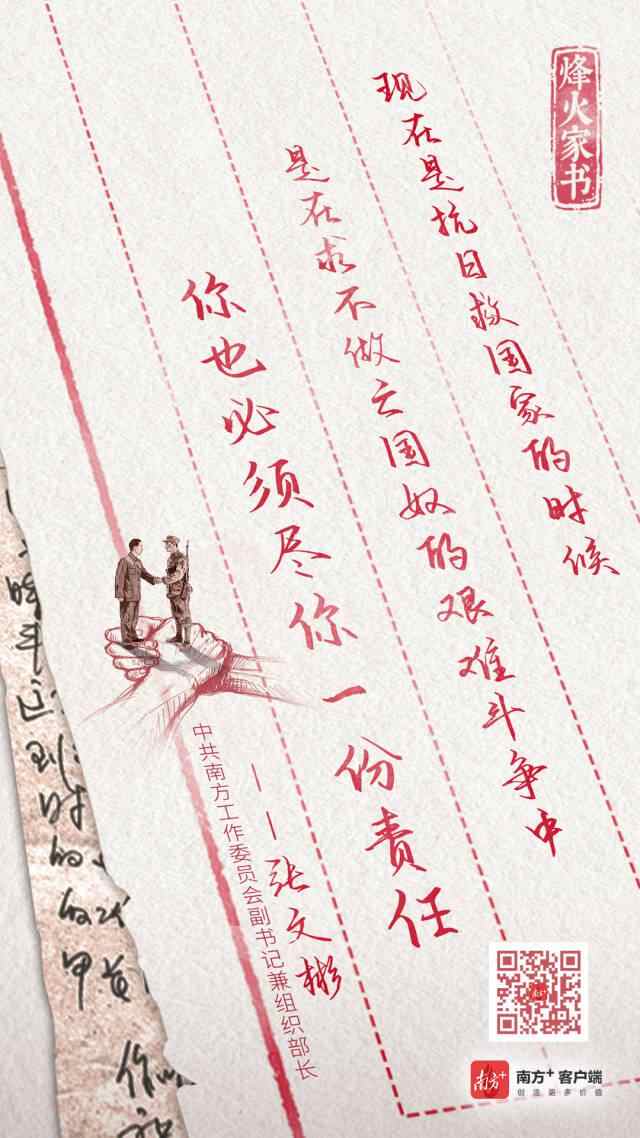 烽火家书
现在是抗日救国家的时候
是在求不做亡国奴的艰难斗争中
你也必须尽你一份责任
——张文彬
中共南方工作委员会副书记兼组织部长
南方+
南方+ 客户端
创造更多价值